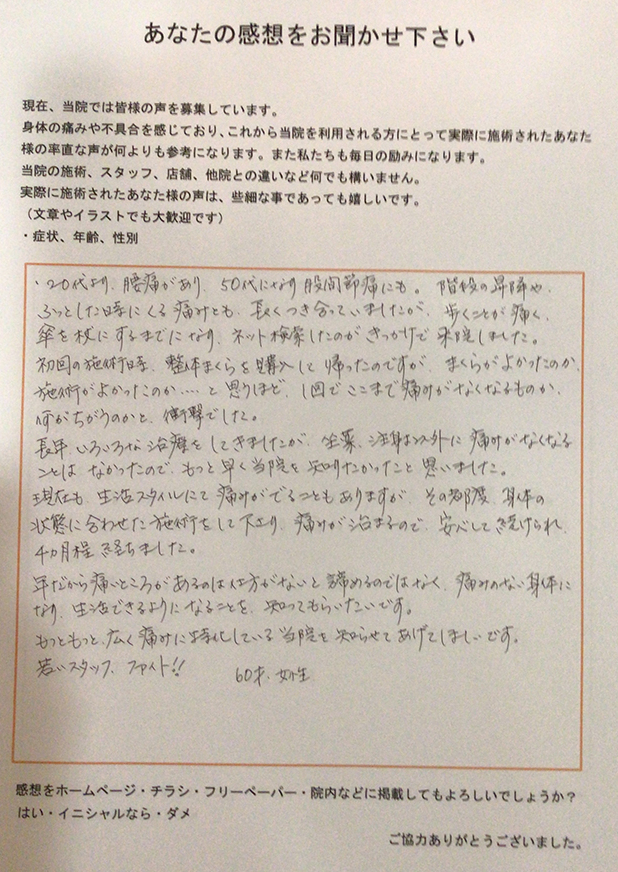 あなたの感想をお聞かせ下さい
現在、当院では皆様の声を募集しています。
身体の痛みや不具合を感じており、これから当院を利用される方にとって実際に施術されたあなた
様の率直な声が何よりも参考になります。また私たちも毎日の励みになります。
当院の施術、スタッフ、店舗、他院との違いなど何でも構いません。
実際に施術されたあなた様の声は、些細な事であっても嬉しいです。
（文章やイラストでも大歓迎です）
・症状、年齢、性別
・20代より、腰痛があり、50代になり股関節痛にも。階段の昇降や、
ふっとした時にくる痛みとも、長くつき合っていましたが、歩くことが痛く、
傘を杖にするまでになり、ネット検索したのがきっかけで来院しました。
初回の施術時、整体まくらを購入して帰ったのですが、まくらがよかったのか、
施術がよかったのか……と思うほど、1回でここまで痛みがなくなるものか、
何がちがうのかと、衝撃でした。
長年、いろいろな治療をしてきましたが、坐薬、注射以外に痛みがなくなる
ことはなかったので、もっと早く当院を知りたかったと思いました。
現在も、生活スタイルにて痛みがでることもありますが、その都度、身体の
状態に合わせた施術をして下さり、痛みが治まるので、安心して続けられ、
4カ月程経ちました。
年だから痛いところがあるのは仕方がないと諦めるのではなく、痛みのない身体に
なり、生活できるようになることを、知ってもらいたいです。
もっともっと、広く痛みに特化している当院を知らせてあげてほしいです。
若いスタッフ、ファイト!!　60才、女性
感想をホームページ・チラシ・フリーペーパー・院内などに掲載してもよろしいでしょうか？
はい・イニシャルなら・ダメ
ご協力ありがとうございました。